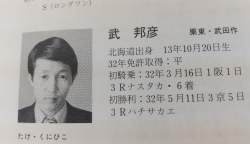 S(ロングワン)
武 邦彦
栗東・武田作
北海道出身 13年10月20日生
32年免許取得:平
初騎乗:32年3月16日1阪1日
3Rナスタカ・6着
初勝利:32年5月11日3京5日
3Rハチサカエ
たけ・くにひこ